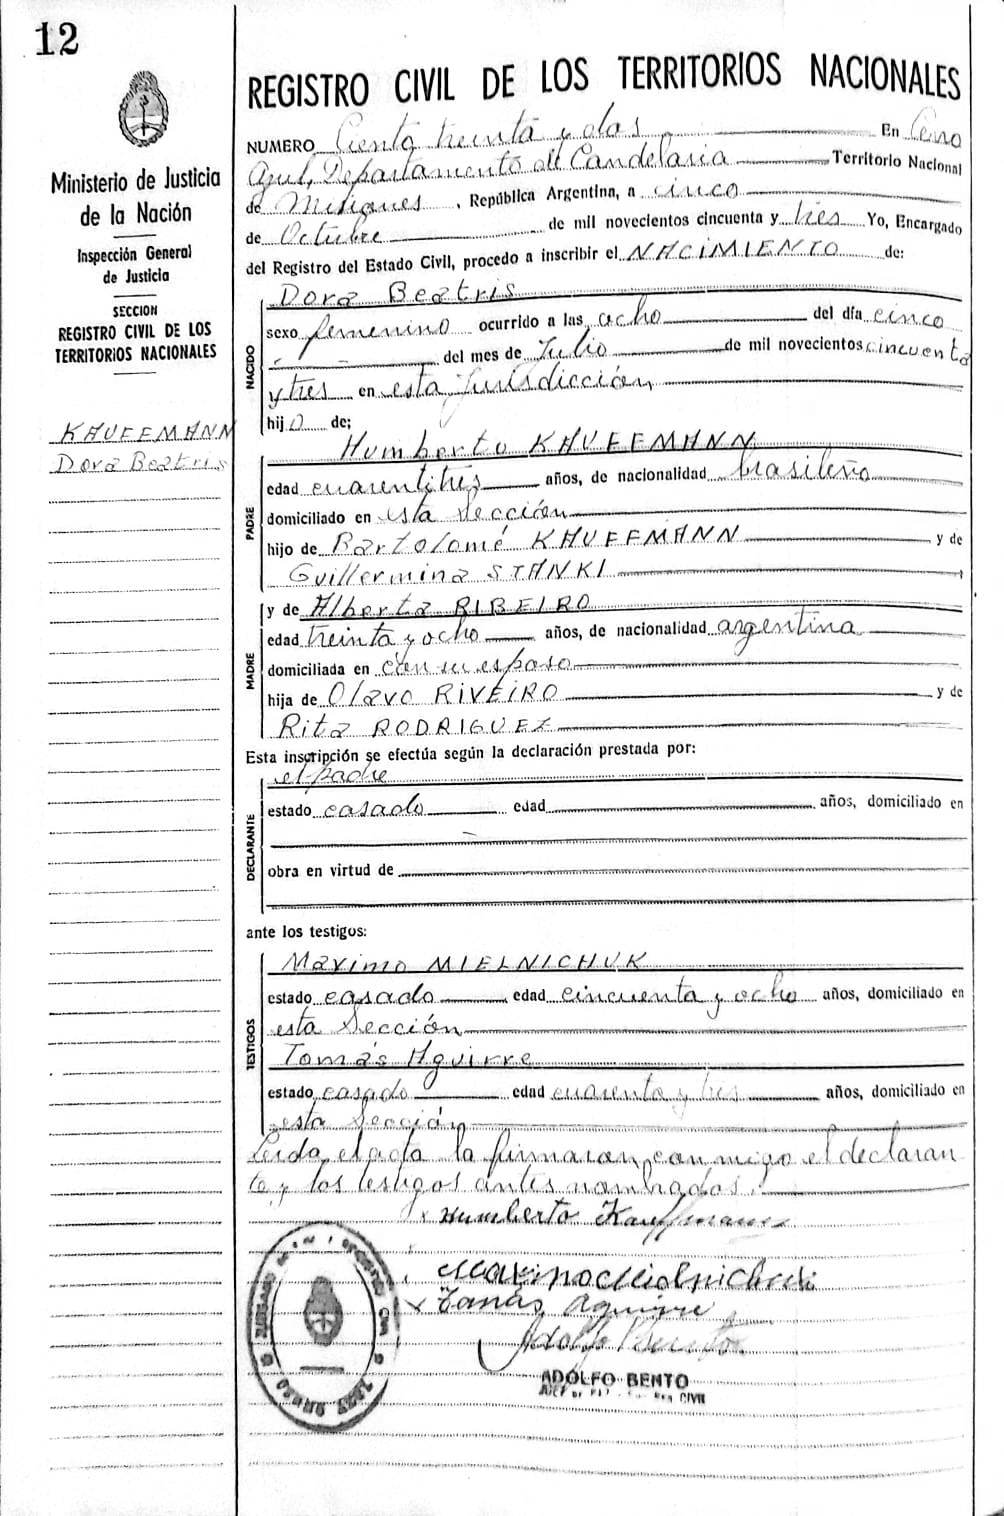 12
Ministerio de Justicia
de la Nación
Inspección General
de Justicia
SECCION
REGISTRO CIVIL DE LOS
TERRITORIOS NACIONALES
KAUFFMANN
Dora Beatris
REGISTRO CIVIL DE LOS TERRITORIOS NACIONALES
NUMERO Ciento treinta y dos En Cerro
Azul, Departamento de Candelaria Territorio Nacional
de Misiones, República Argentina, a cinco
de Octubre de mil novecientos cincuenta y tres Yo, Encargado
del Registro del Estado Civil, procedo a inscribir el NACIMIENTO de:
NACIDO
Dora Beatris
sexo femenino ocurrido a las ocho del día cinco
del mes de Julio de mil novecientos cincuenta
y tres en esta Jurisdicción
hija de;
PADRE
Humberto KAUFFMANN
edad cuarentitrés años, de nacionalidad brasileño
domiciliado en esta Sección
hijo de Bartolomé KAUFFMANN y de
Guillermina STANKI
MADRE
y de Alberta RIBEIRO
edad treinta y ocho años, de nacionalidad argentina
domiciliada en con su esposo
hija de Olavo RIVEIRO y de
Rita RODRIGUEZ
Esta inscripción se efectúa según la declaración prestada por:
DECLARANTE
el padre
estado casado edad años, domiciliado en
obra en virtud de
ante los testigos:
TESTIGOS
Maximo MIELNICHUK
estado casado edad cincuenta y ocho años, domiciliado en
esta Sección
Tomás Aguirre
estado casado edad cuarenta y tres años, domiciliado en
esta Sección
Leida el acta la firmaran conmigo el declaran
te y los testigos antes nombrados.
x Humberto Kauffmann
Maximo Mielnichuk
x Tomás Aguirre
Adolfo Bento
ADOLFO BENTO
JUEZ DE PAZ CIVIL